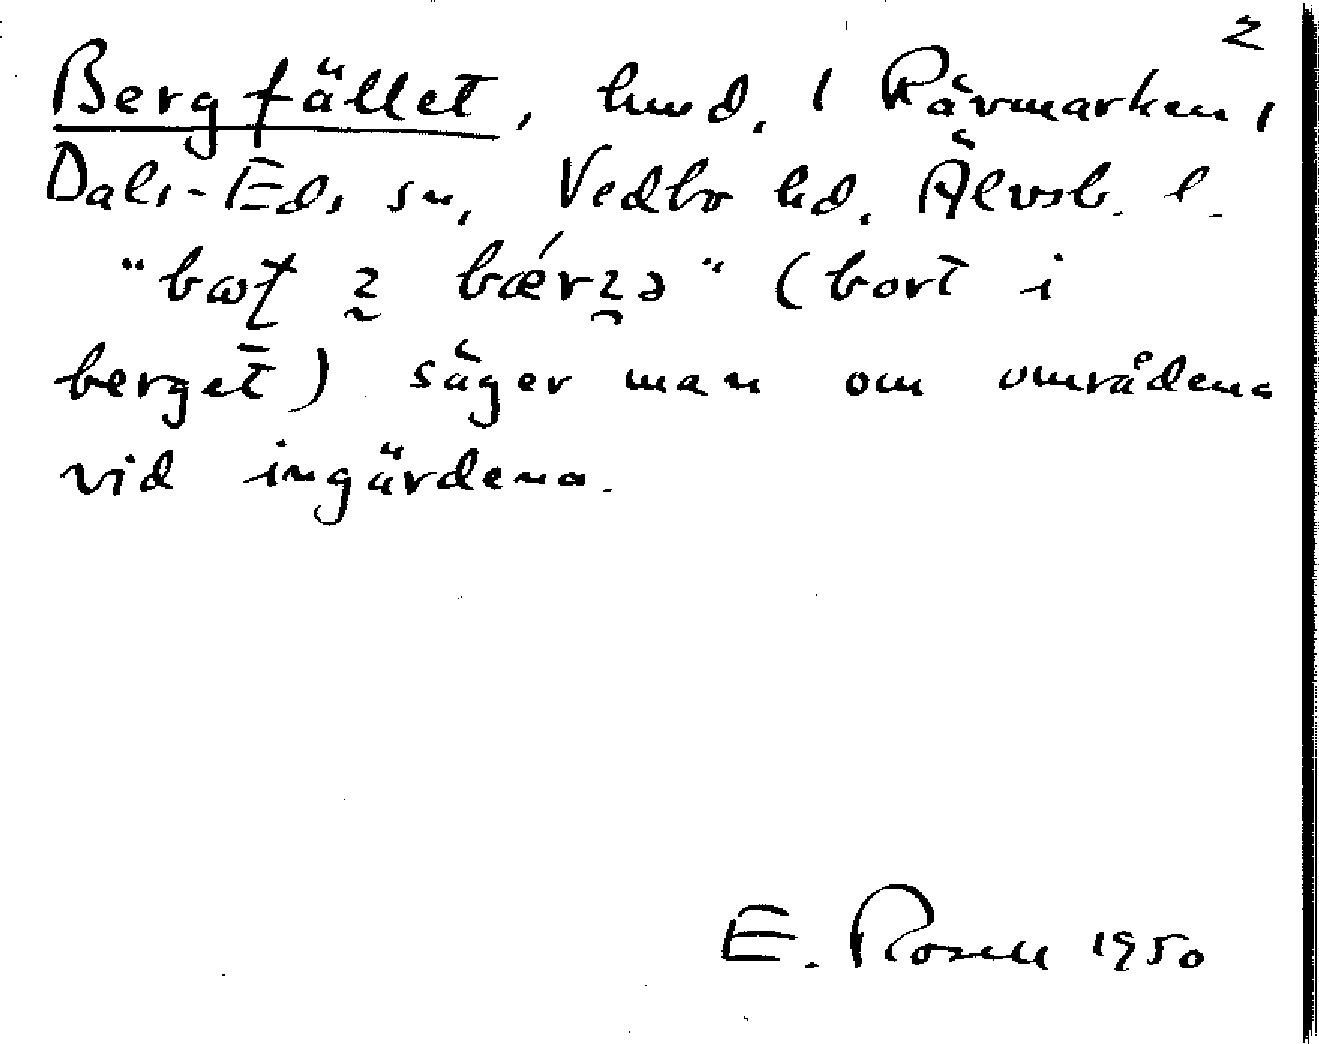 2
Bergfället, hmd. i Rävmarken,
Dals-Eds sn, Vedbo hd. Älvsb. l.
" " (bort i
berget) säger man om områdena
vid ingärdena.
E. Rosell 1950